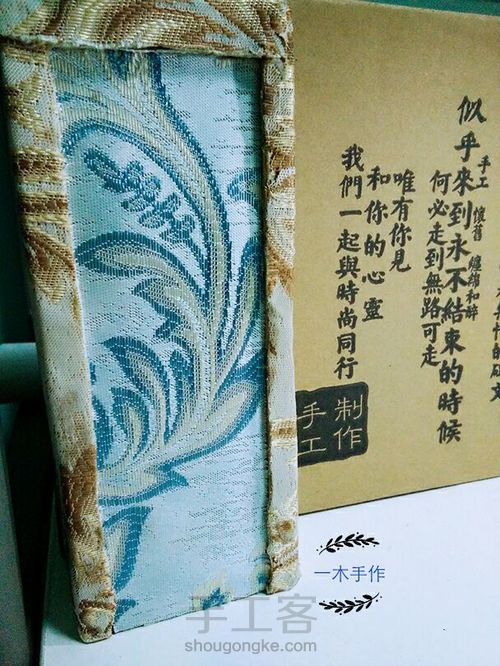 纏綿和醉
懷舊
手工
似乎來到永不結束的時候
何必走到無路可走
唯有你見
和你的心靈
我們一起與時尚同行
手工
制作
一木手作
手工客
shougongke.com